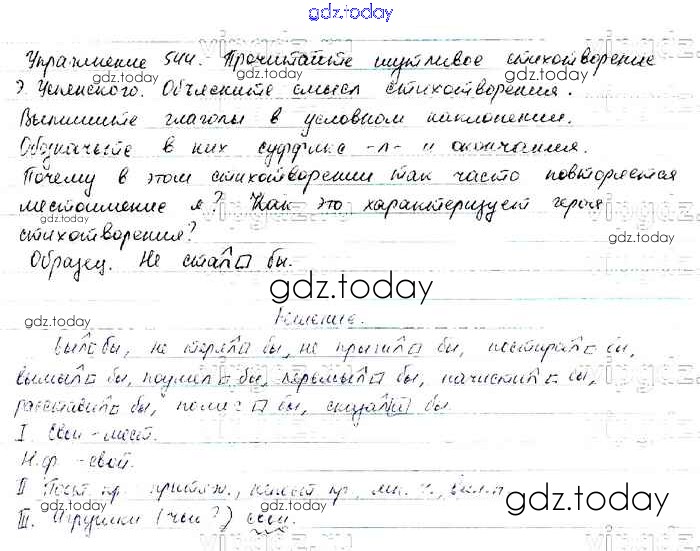 gdz.today
Упражнение 544. Прочитайте шутливое стихотворение
gdz.today gdz.today
Э. Успенского. Объясните смысл стихотворения.
Выпишите глаголы в условном наклонении.
Обозначьте в них суффикс -л- и окончания.
gdz.today gdz.today
Почему в этом стихотворении так часто повторяется
местоимение я? Как это характеризует героя
стихотворения?
gdz.today
Образец. Не стал□ бы.
gdz.today
gdz.today
Решение.
был бы, не терял□ бы, не бы, постирал□ бы,
вымыл□ бы, бы, бы, начистил□ бы,
расставил□ бы, бы, бы.
gdz.today
I. Свои - мест.
Н.ф. - свой.
II. Пост. пр.: притяж., непост. пр., мн. ч., вин.п
gdz.today
III. Игрушки (чьи?) свои.
gdz.today